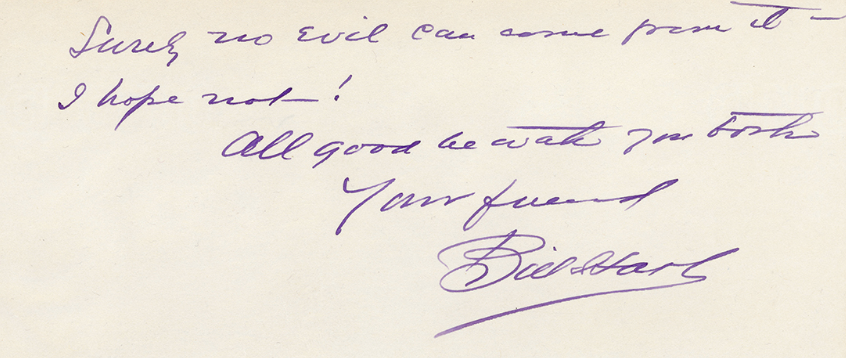 Surely no evil can come from it —
I hope not — !
All good be with you both
Your friend
Bill Hart